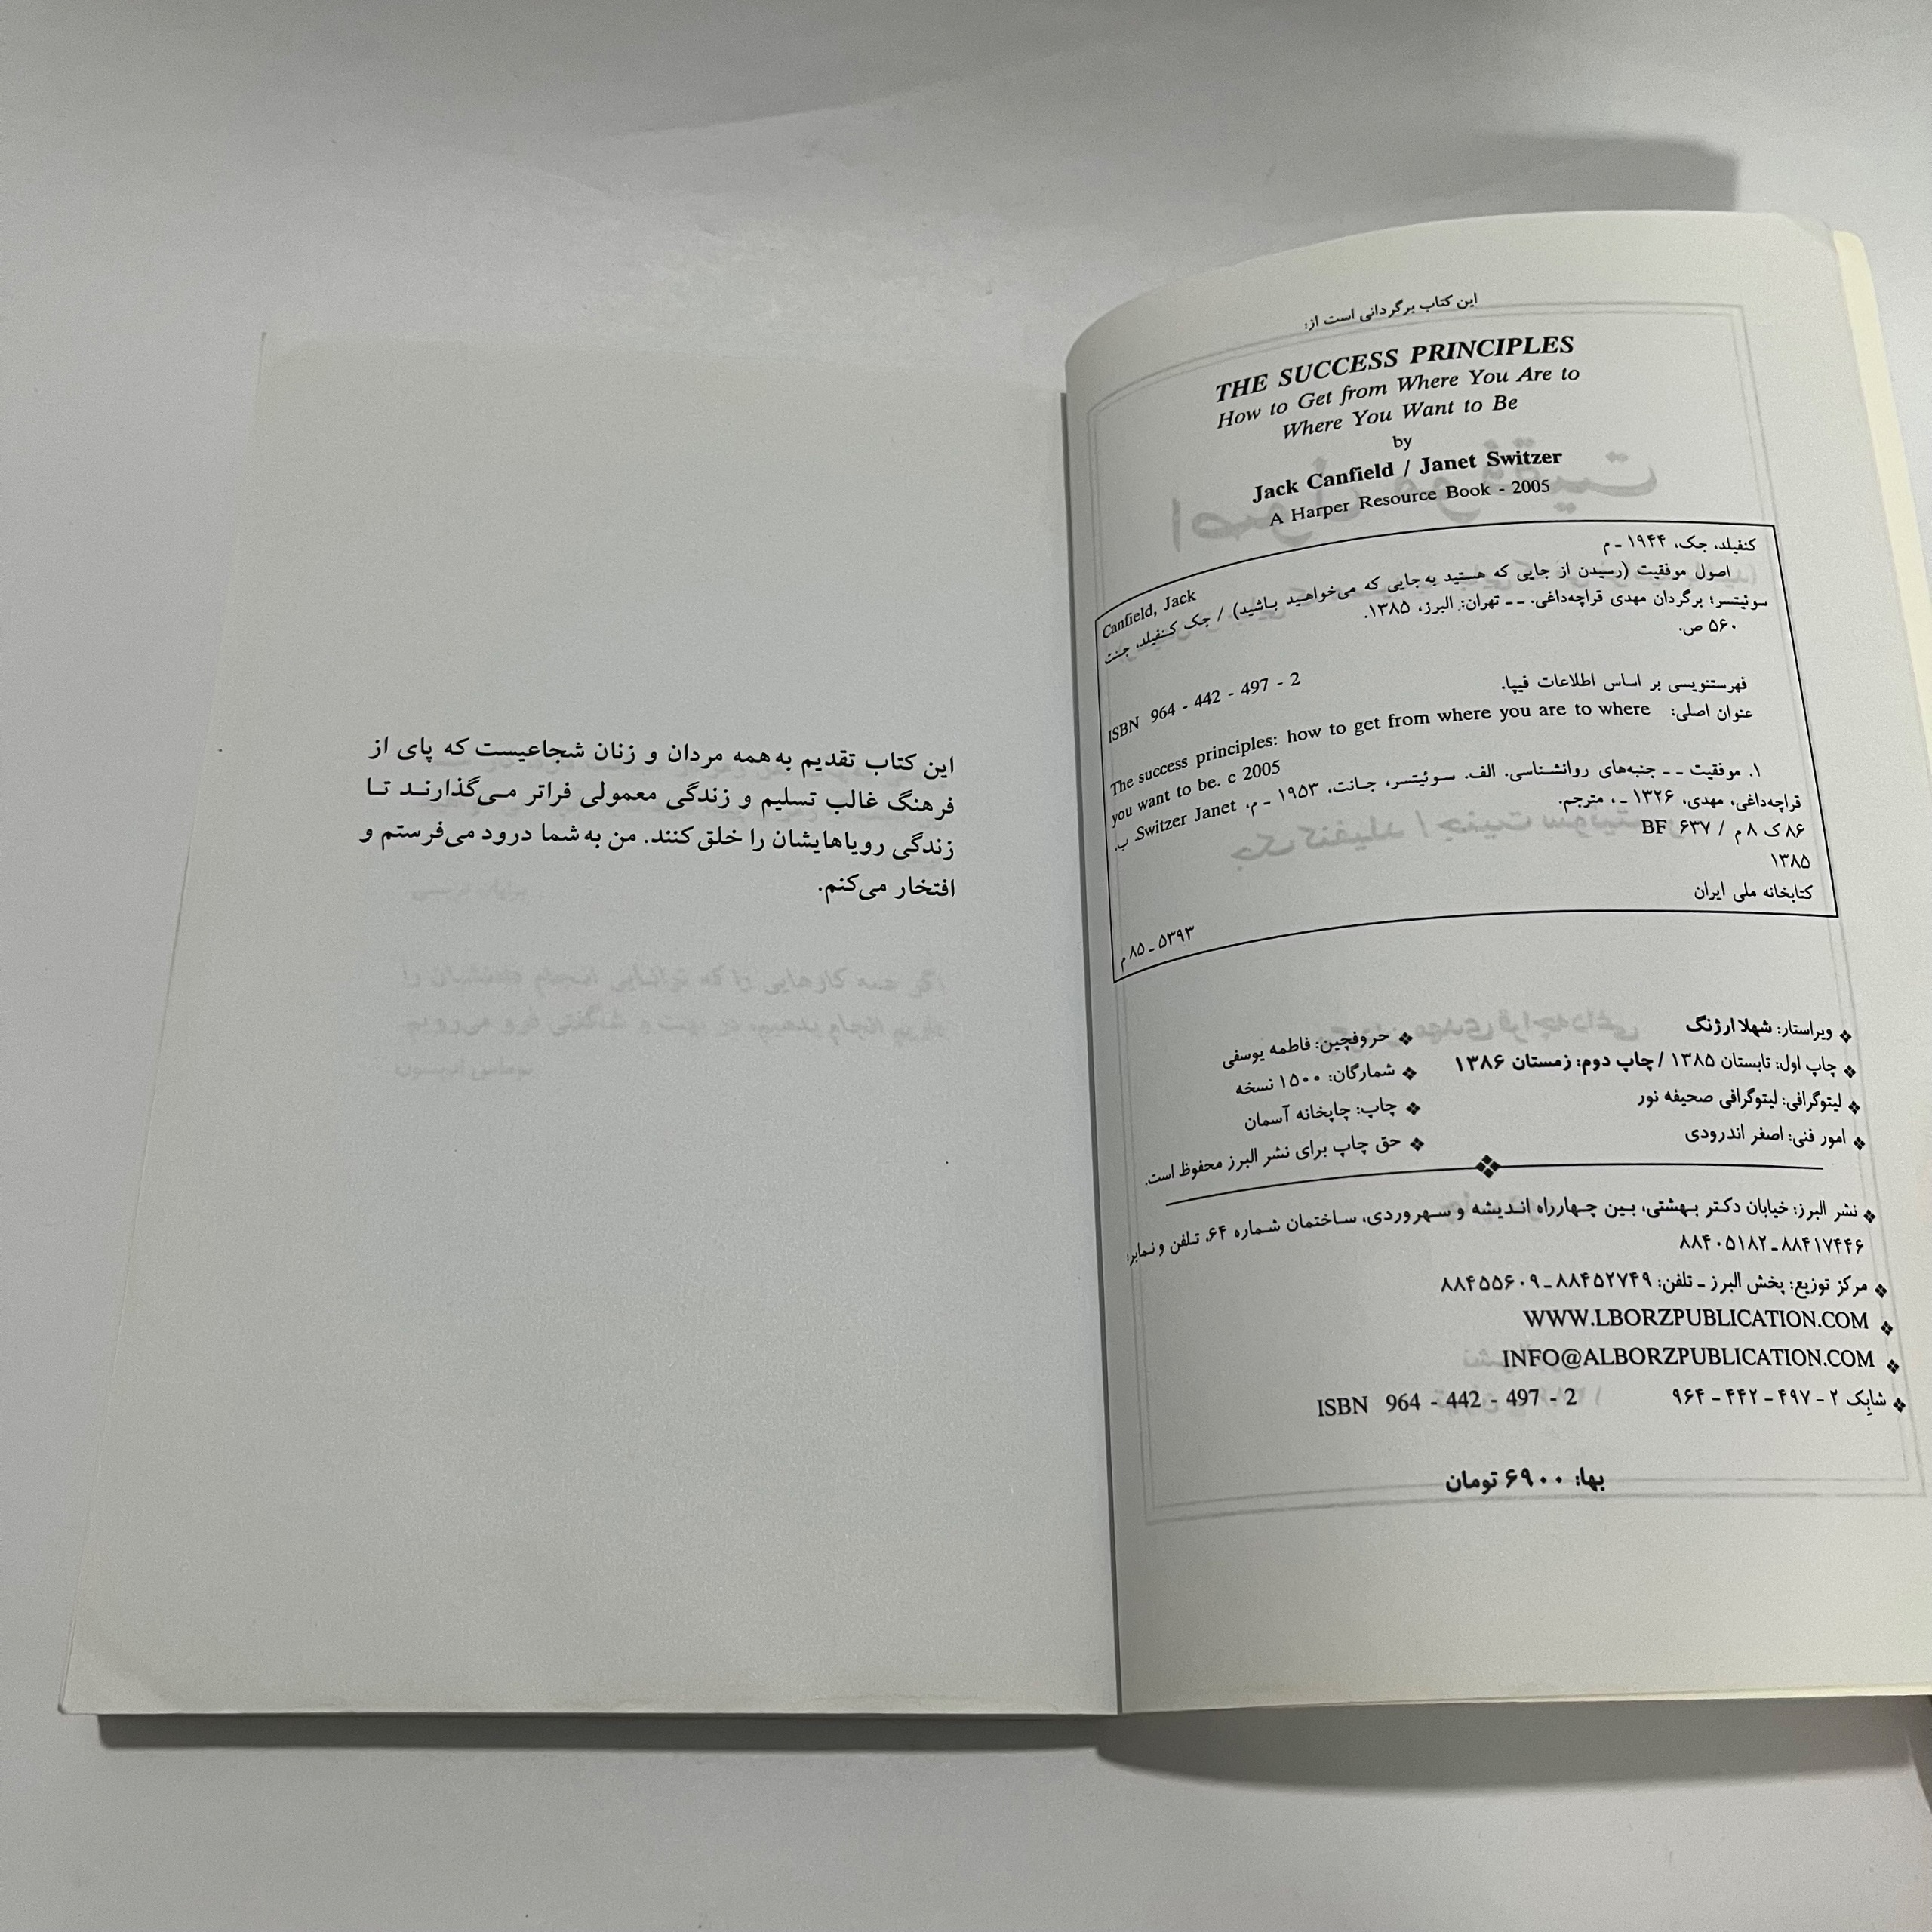 این کتاب برگردانی است از:
THE SUCCESS PRINCIPLES
How to Get from Where You Are to
Where You Want to Be
by
Jack Canfield / Janet Switzer
A Harper Resource Book - 2005
کنفیلد، جک، ۱۹۴۴ ـ م
Canfield, Jack
اصول موفقیت (رسیدن از جایی که هستید به‌جایی که می‌خواهید باشید) / جک کنفیلد، جنت
سوئیتسر؛ برگردان مهدی قراچه‌داغی. ـ ـ تهران: البرز، ۱۳۸۵.
۵۶۰ ص.
ISBN 964 - 442 - 497 - 2
فهرستنویسی بر اساس اطلاعات فیپا.
عنوان اصلی: The success principles: how to get from where you are to where
you want to be. c 2005
۱. موفقیت ـ ـ جنبه‌های روانشناسی. الف. سوئیتسر، جانت، ۱۹۵۳ ـ م، Switzer Janet. ب.
قراچه‌داغی، مهدی، ۱۳۲۶ ـ ، مترجم.
۸۶ ک ۸ م / ۶۳۷ BF
۱۳۸۵
کتابخانه ملی ایران
۵۳۹۳ ـ ۸۵ م
❖ ویراستار: شهلا ارژنگ
❖ حروفچین: فاطمه یوسفی
❖ چاپ اول: تابستان ۱۳۸۵ / چاپ دوم: زمستان ۱۳۸۶
❖ شمارگان: ۱۵۰۰ نسخه
❖ لیتوگرافی: لیتوگرافی صحیفه نور
❖ چاپ: چاپخانه آسمان
❖ امور فنی: اصغر اندرودی
❖ حق چاپ برای نشر البرز محفوظ است.
❖ نشر البرز: خیابان دکتر بهشتی، بین چهارراه اندیشه و سهروردی، ساختمان شماره ۶۴، تلفن و نمابر:
۸۸۴۱۷۴۴۶ ـ ۸۸۴۰۵۱۸۲
❖ مرکز توزیع: پخش البرز ـ تلفن: ۸۸۴۵۲۷۴۹ ـ ۸۸۴۵۵۶۰۹
❖ WWW.LBORZPUBLICATION.COM
❖ INFO@ALBORZPUBLICATION.COM
❖ شابک ۲ - ۴۹۷ - ۴۴۲ - ۹۶۴ ISBN 964 - 442 - 497 - 2
بها: ۶۹۰۰ تومان
این کتاب تقدیم به‌همه مردان و زنان شجاعیست که پای از
فرهنگ غالب تسلیم و زندگی معمولی فراتر می‌گذارند تا
زندگی رویاهایشان را خلق کنند. من به‌شما درود می‌فرستم و
افتخار می‌کنم.